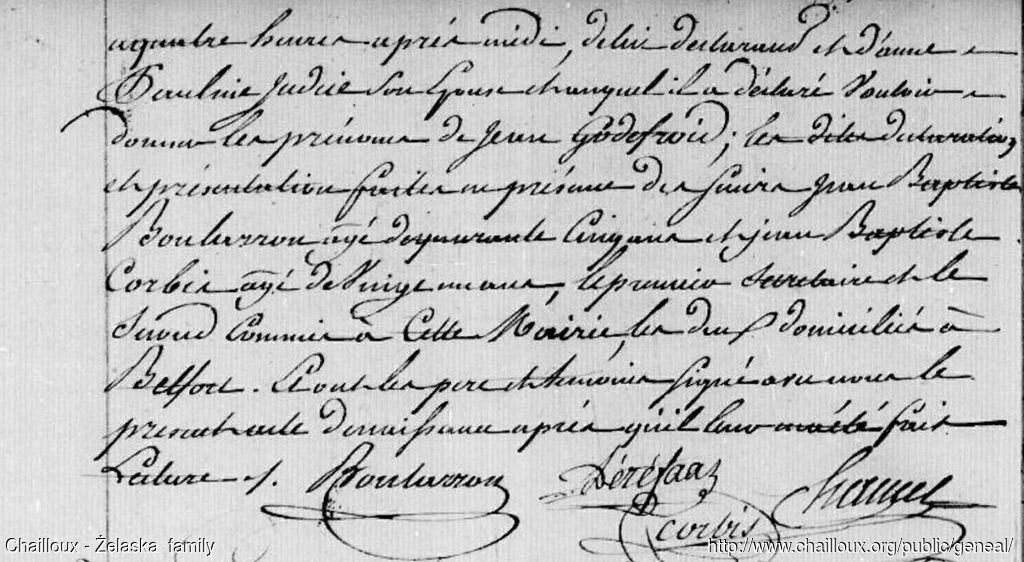 a quatre heures après midi, de lui declarand et d'anne
Pauline Judice Son Epouse et auquel il a déclaré Vouloir
donner les prénoms de Jean Godefroid; les dites declarations
et présentation faites en présence des sieurs Jean Baptiste
Boularron agé de quarante Cinq ans et jean Baptiste
Corbis agé de Vingt un ans, le premier Secretaire et le
Second Commis à Cette Mairie, les deux domiciliés à
Belfort. Et ont les pere et temoins signé avec nous le
present acte de naissance après qu'il leur en a été fait
Lecture /.
Boularron
corbis
Chailloux - Želaska family
http://www.chailloux.org/public/geneal/